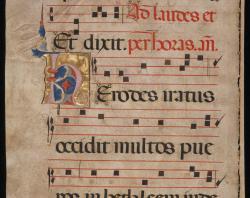 Ad laudes et
Et dixit. per horas. añ.
Herodes iratus
occidit multos pue
ros in bethleem iude